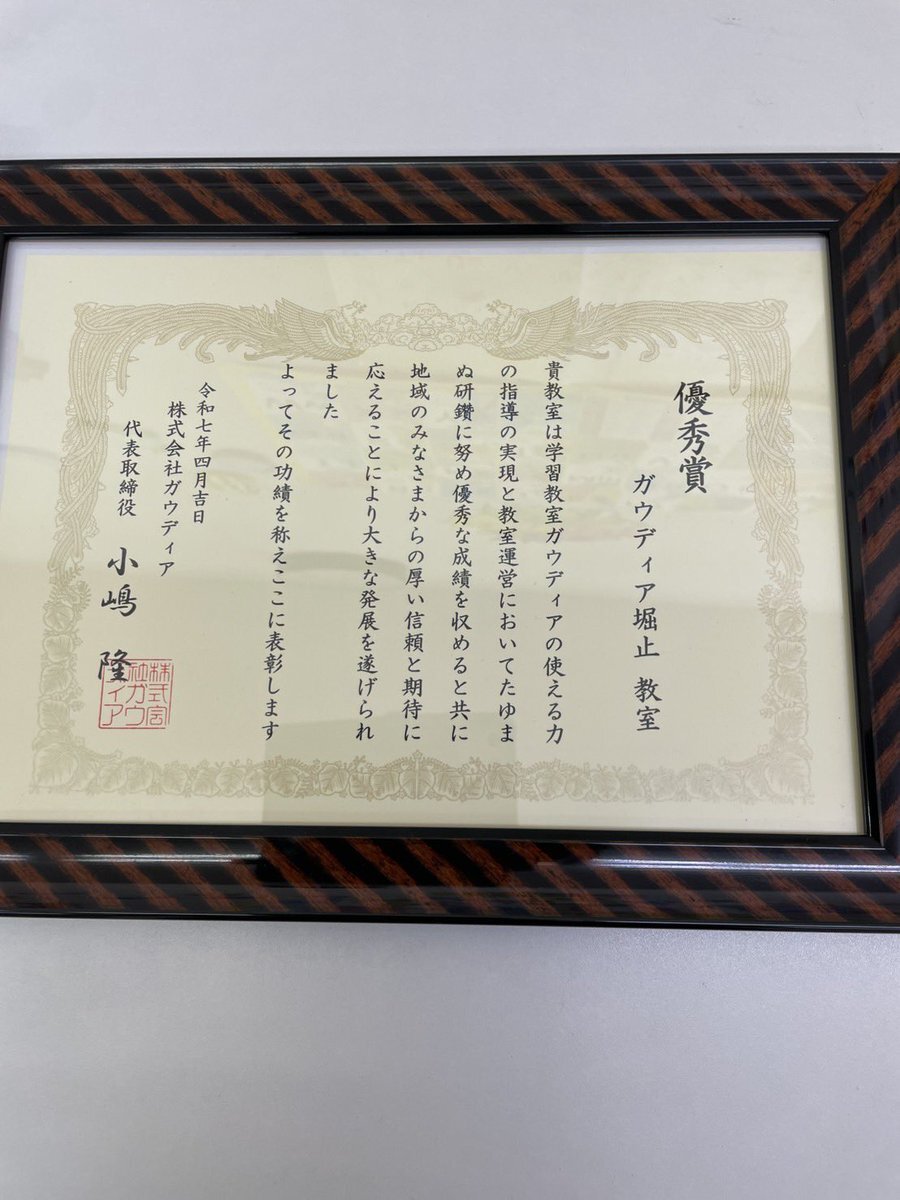 優秀賞
ガウディア堀止 教室
貴教室は学習教室ガウディアの使える力
の指導の実現と教室運営においてたゆま
ぬ研鑽に努め優秀な成績を収めると共に
地域のみなさまからの厚い信頼と期待に
応えることにより大きな発展を遂げられ
ました
よってその功績を称えここに表彰します
令和七年四月吉日
株式会社ガウディア
代表取締役 小嶋 隆
株式会
社ガウ
ディア